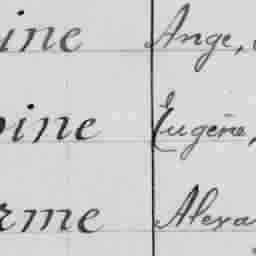 ine Ange,
ine Eugène,
rme Alexa